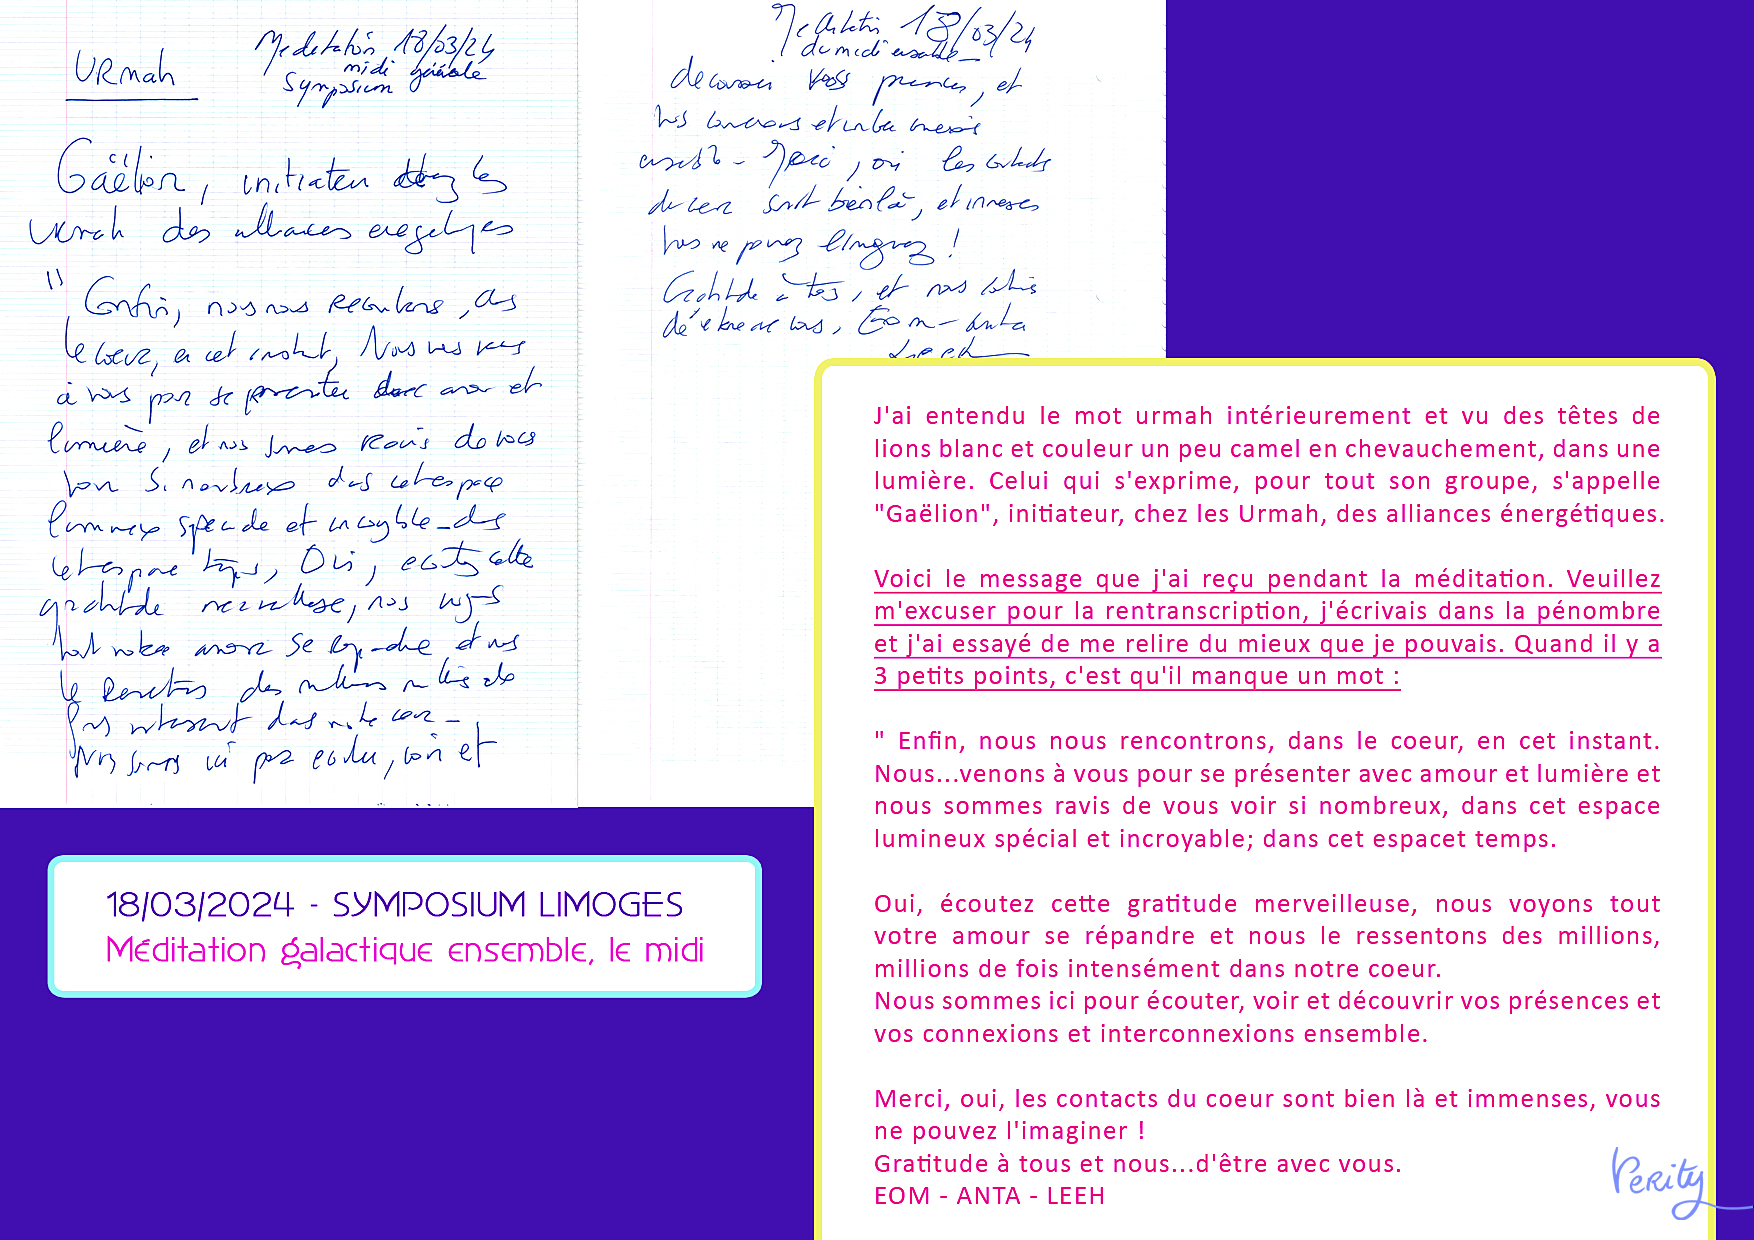 URmah
Meditation 18/03/24
midi générale
Symposium
Gaëlion, initiateur chez les
Urmah des alliances energetiques
" Enfin, nous nous rencontrons, dans
le coeur, en cet instant, Nous venons
à vous pour se presenter avec amour et
lumière, et nous sommes ravis de vous
voir si nombreux dans cet espace
lumineux special et incroyable - dans
cet espace temps, Oui, ecoutez cette
gratitude merveilleuse, nous voyons
tout votre amour se repandre et nous
le ressentons des millions millions de
fois intensement dans notre coeur -
Nous sommes ici pour ecouter, voir et
Meditation 18/03/24
du midi ensemble
decouvrir vos presences, et
vos connexions et interconnexions
ensemble - Merci, oui les contacts
du coeur sont bien là, et immenses
vous ne pouvez l'imaginez !
Gratitude à tous, et nous
d'être avec vous, Eom - anta
Leeh
J'ai entendu le mot urmah intérieurement et vu des têtes de
lions blanc et couleur un peu camel en chevauchement, dans une
lumière. Celui qui s'exprime, pour tout son groupe, s'appelle
"Gaëlion", initiateur, chez les Urmah, des alliances énergétiques.
Voici le message que j'ai reçu pendant la méditation. Veuillez
m'excuser pour la rentranscription, j'écrivais dans la pénombre
et j'ai essayé de me relire du mieux que je pouvais. Quand il y a
3 petits points, c'est qu'il manque un mot :
" Enfin, nous nous rencontrons, dans le coeur, en cet instant.
Nous...venons à vous pour se présenter avec amour et lumière et
nous sommes ravis de vous voir si nombreux, dans cet espace
lumineux spécial et incroyable; dans cet espacet temps.
Oui, écoutez cette gratitude merveilleuse, nous voyons tout
votre amour se répandre et nous le ressentons des millions,
millions de fois intensément dans notre coeur.
Nous sommes ici pour écouter, voir et découvrir vos présences et
vos connexions et interconnexions ensemble.
Merci, oui, les contacts du coeur sont bien là et immenses, vous
ne pouvez l'imaginer !
Gratitude à tous et nous...d'être avec vous.
EOM - ANTA - LEEH
18/03/2024 - SYMPOSIUM LIMOGES
Méditation galactique ensemble, le midi
Verity